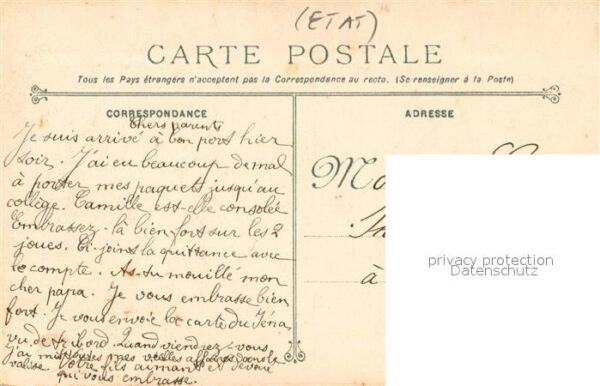 (ETAT)
CARTE POSTALE
Tous les Pays étrangers n'acceptent pas la Correspondance au recto. (Se renseigner à la Poste)
CORRESPONDANCE
ADRESSE
Chers parents
Je suis arrivé à bon port hier
soir. J'ai eu beaucoup de mal
à porter mes paquets jusqu'au
collège. Camille est-elle consolée
Embrassez-là bien fort sur les 2
joues. Ci-joins la quittance avec
le compte. As-tu mouillé mon
cher papa. Je vous embrasse bien
fort. Je vous envoie la carte du Iéna
vu de tribord. Quand viendrez-vous,
j'ai mes vieilles affaires dans la
valise Votre fils aimant et dévoué
qui vous embrasse.
à
privacy protection
Datenschutz